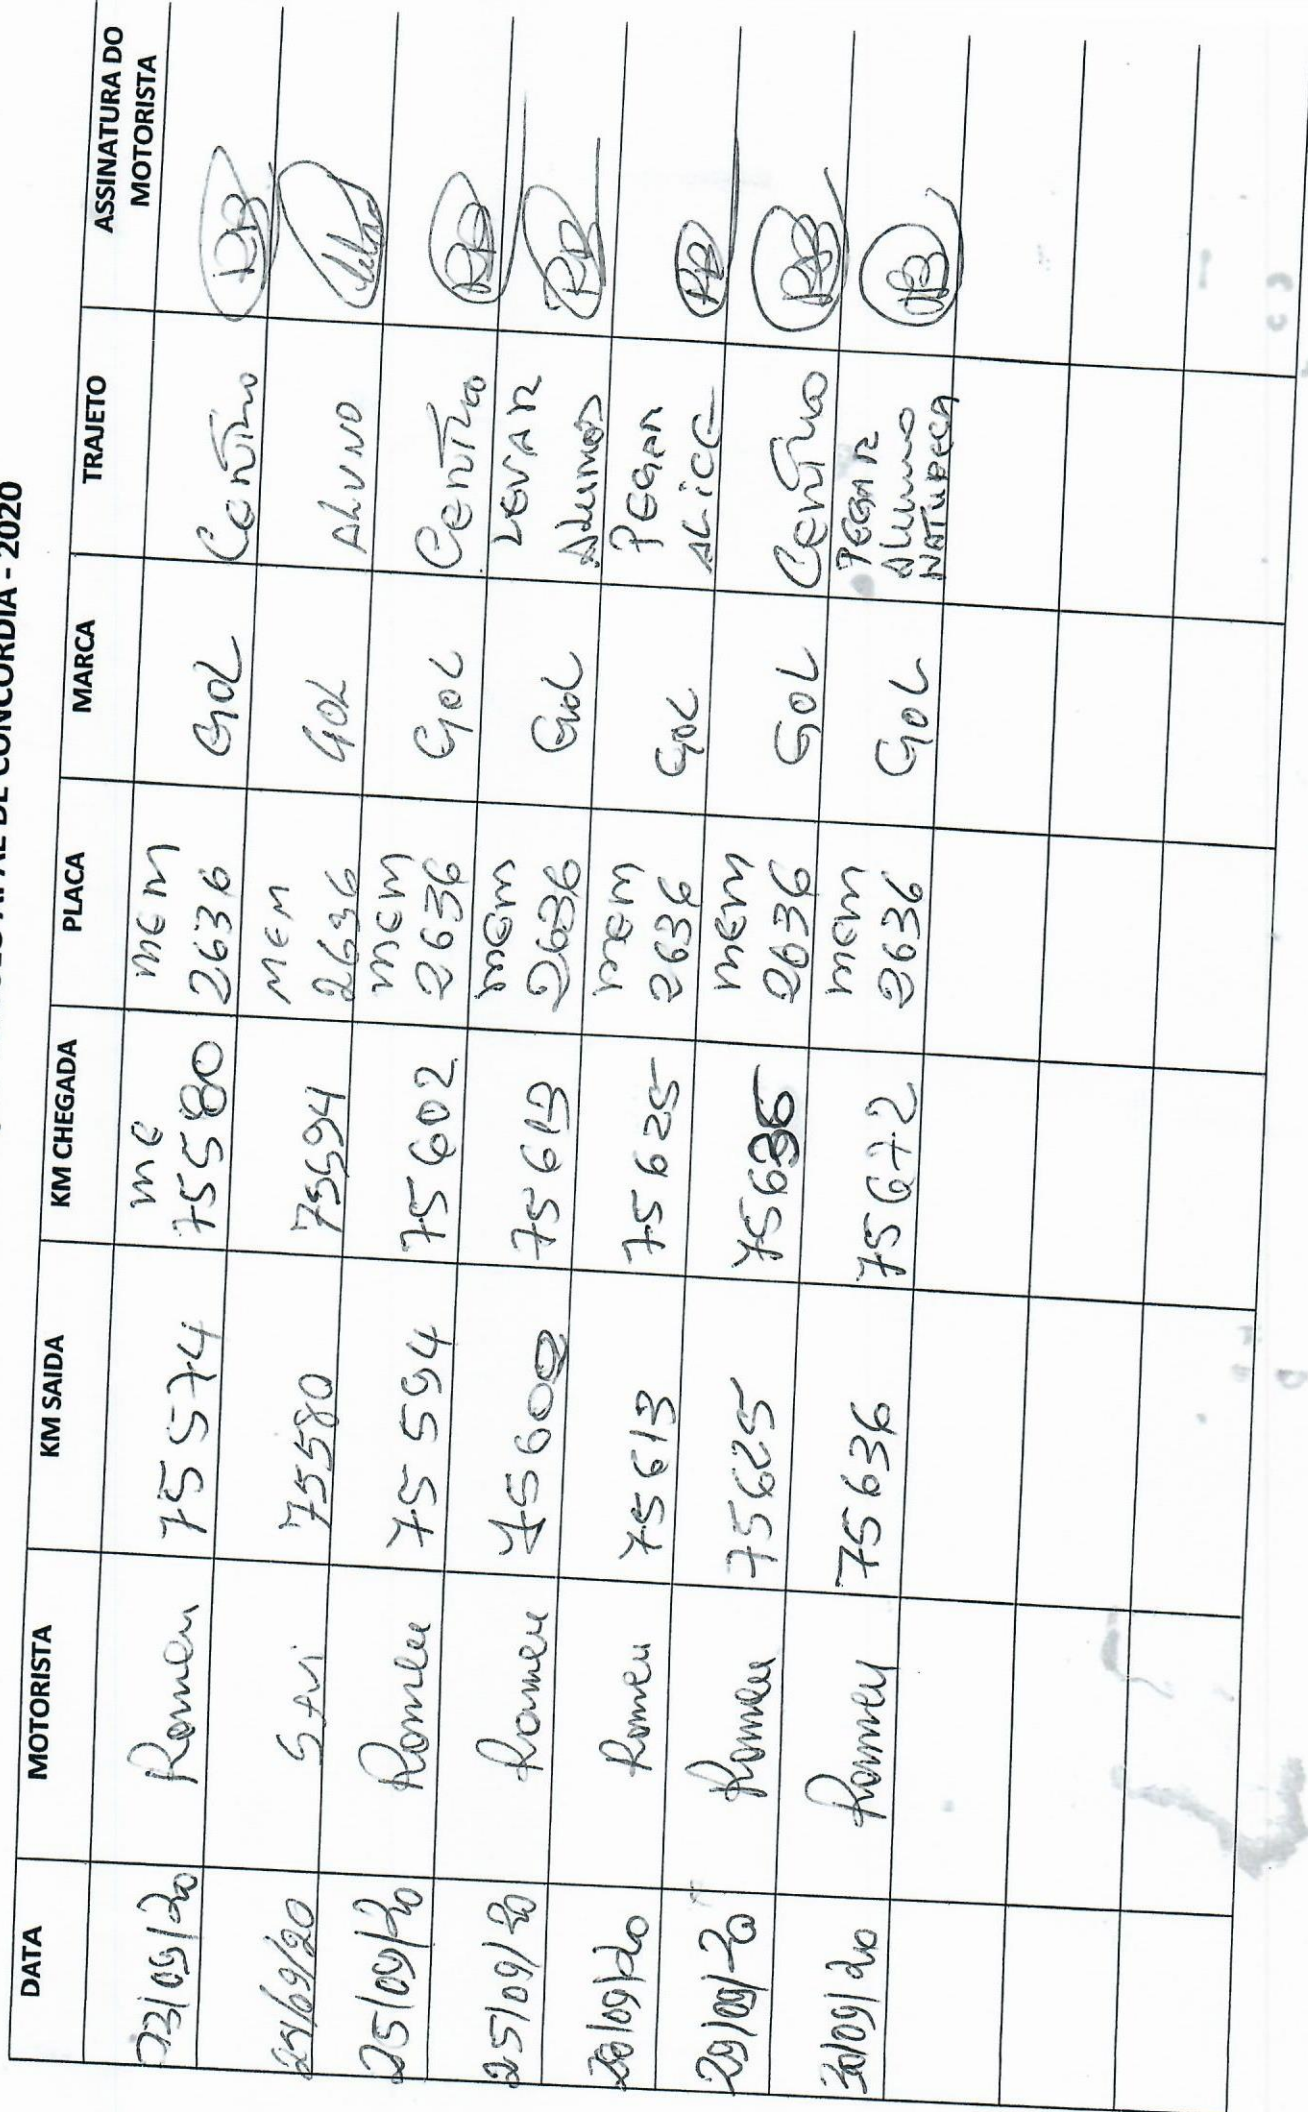 DE CONCÓRDIA - 2020
DATA MOTORISTA KM SAIDA KM CHEGADA PLACA MARCA TRAJETO ASSINATURA DO MOTORISTA
23/09/20 Romeu 75574 me 75580 mem 2636 GOL Centro RB
24/09/20 75580 75594 MEM 2636 GOL ALUNO
25/09/20 Romeu 75594 75602 mem 2636 GOL Centro RB
25/09/20 Romeu 75602 75613 mem 2636 GOL LEVAR Alunos RB
28/09/20 Romeu 75613 75625 mem 2636 GOL PEGAR ALICE RB
29/09/20 Romeu 75625 75636 mem 2636 GOL Centro RB
30/09/20 Romeu 75636 75672 mem 2636 GOL PEGAR Aluno RB